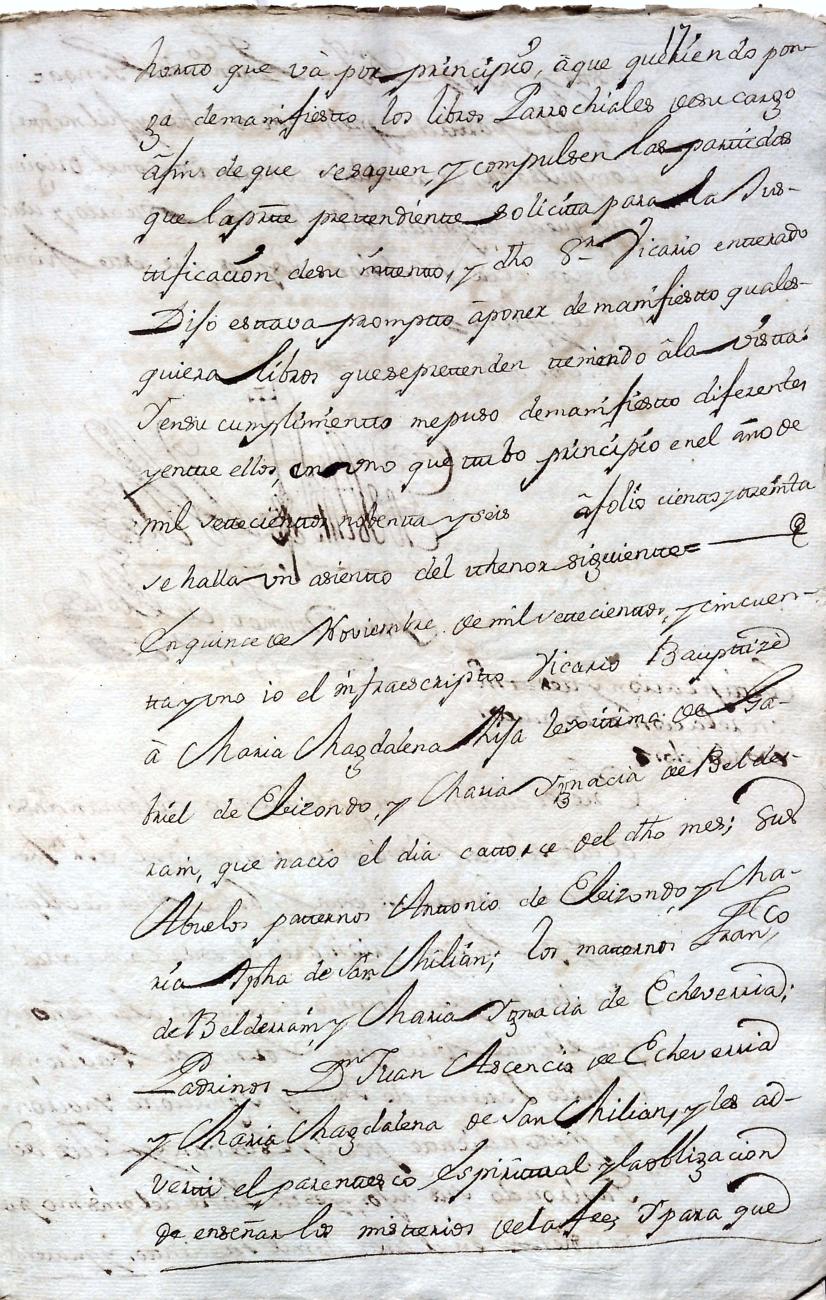 17
horto que và por principio, âque queriendo pon-
ga demanifiesto los libros Parrochiales desu cargo
âfin de que sesaquen, y compulsen las partidas
que la prtte prettendientte solicitta para la Jus-
ttificacion desu inttentto, y dho Sr. Vicario entterado
Dijo esttava prompto âponer demanifiestto quales-
quiera libros quesepretenden tteniendo âla vistta:
Y ensu cumplimientto mepuso demanifiestto diferenttes
y enttre ellos, en uno que ttubo principio enel año de
mil settecienttos nobentta y seis âfolio cientto y treinta
se halla un asientto del tthenor siguientte=
En quince de Noviembre de mil settecienttos, y cincuen-
tta y uno io el infraescriptto Vicario Bapttizè
â Maria Magdalena Hija lexittima de Ga-
briel de Elizondo, y Maria Ygnacia de Belder-
rain, que naciò el dia cattorce del dho mes; sus
Abuelos patternos Anttonio de Elizondo y Ma-
ria Jpha de San Milian; los matternos Franco
de Belderrain, y Maria Ygnacia de Echeverria;
Padrinos Dn Juan Ascencio de Echeverria
y Maria Magdalena de San Milian, y les ad-
vertti el parenttesco Espirittual y la obligacion
de enseñar los mistterios dela feè; Y para que